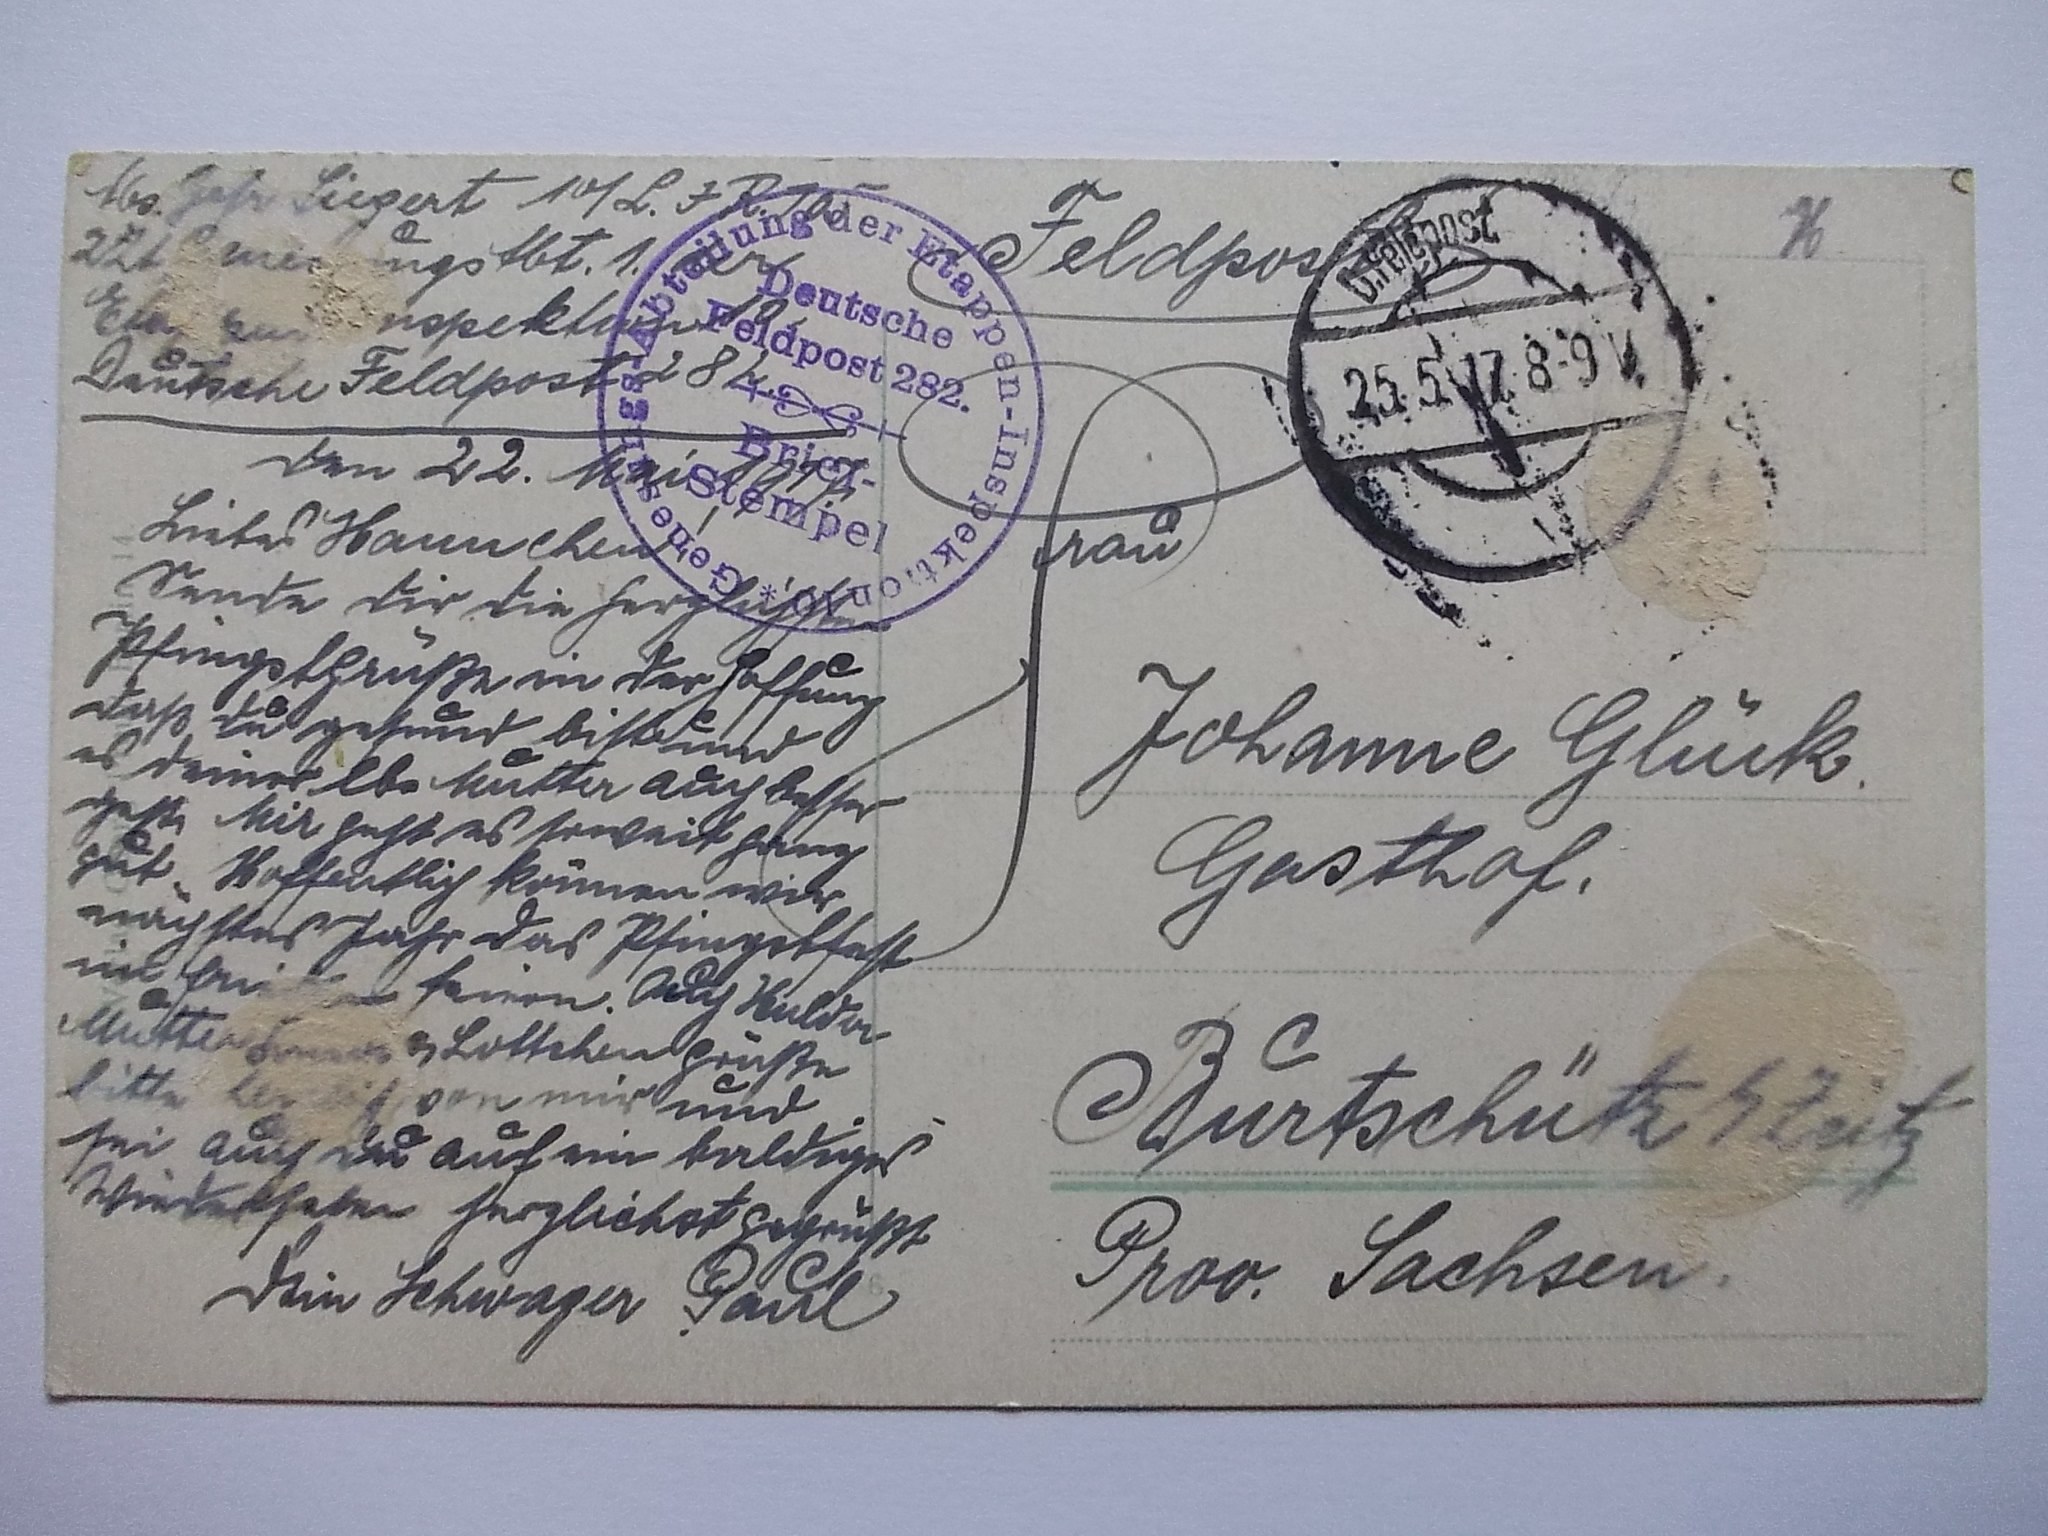 Abs. Gefr Siegert 10/L.I.R.
Abt. 1. der
Etappen Inspektion
Deutsche Feldpost 282.
den 22. Mai 1917.
Liebes Hannchen!
Sende dir die herzlichsten
Pfingstgrüße in der Hoffung
daß du gesund bist und
es deiner lbn Mutter auch besser
geht. Mir geht es soweit ganz
gut. Hoffentlich können wir
nächstes Jahr das Pfingstfest
im Frieden feiern. Auch Hulda
Mutter Lottchen grüße
bitte herzlich von mir und
sei auch du auf ein baldiges
Wiedersehen herzlichst gegrüßt
Dein Schwager Paul
Genesungs-Abteilung der Etappen-Inspektion 10 *
Deutsche
Feldpost 282.
Brief-
Stempel
Feldpost
D. Feldpost
25.5.17. 8-9 V.
H
Frau
Johanne Glück.
Gasthof.
Burtschütz b/Zeitz
Prov. Sachsen.